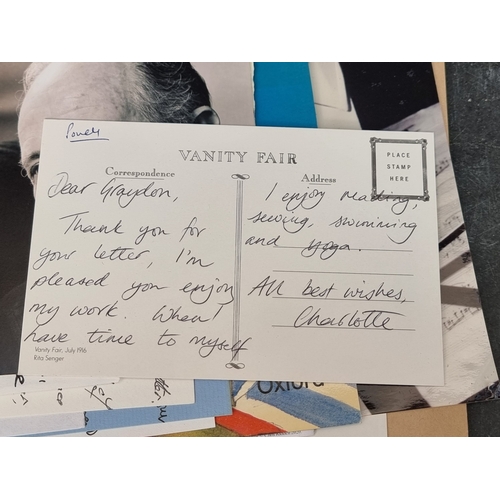 Powell
VANITY FAIR
Correspondence
Address
PLACE
STAMP
HERE
Dear Graydon,
Thank you for
your letter, I'm
pleased you enjoy
my work. When I
have time to myself
I enjoy reading,
sewing, swimming
and yoga.
All best wishes,
Charlotte
Vanity Fair, July 1916
Rita Senger
Oxford